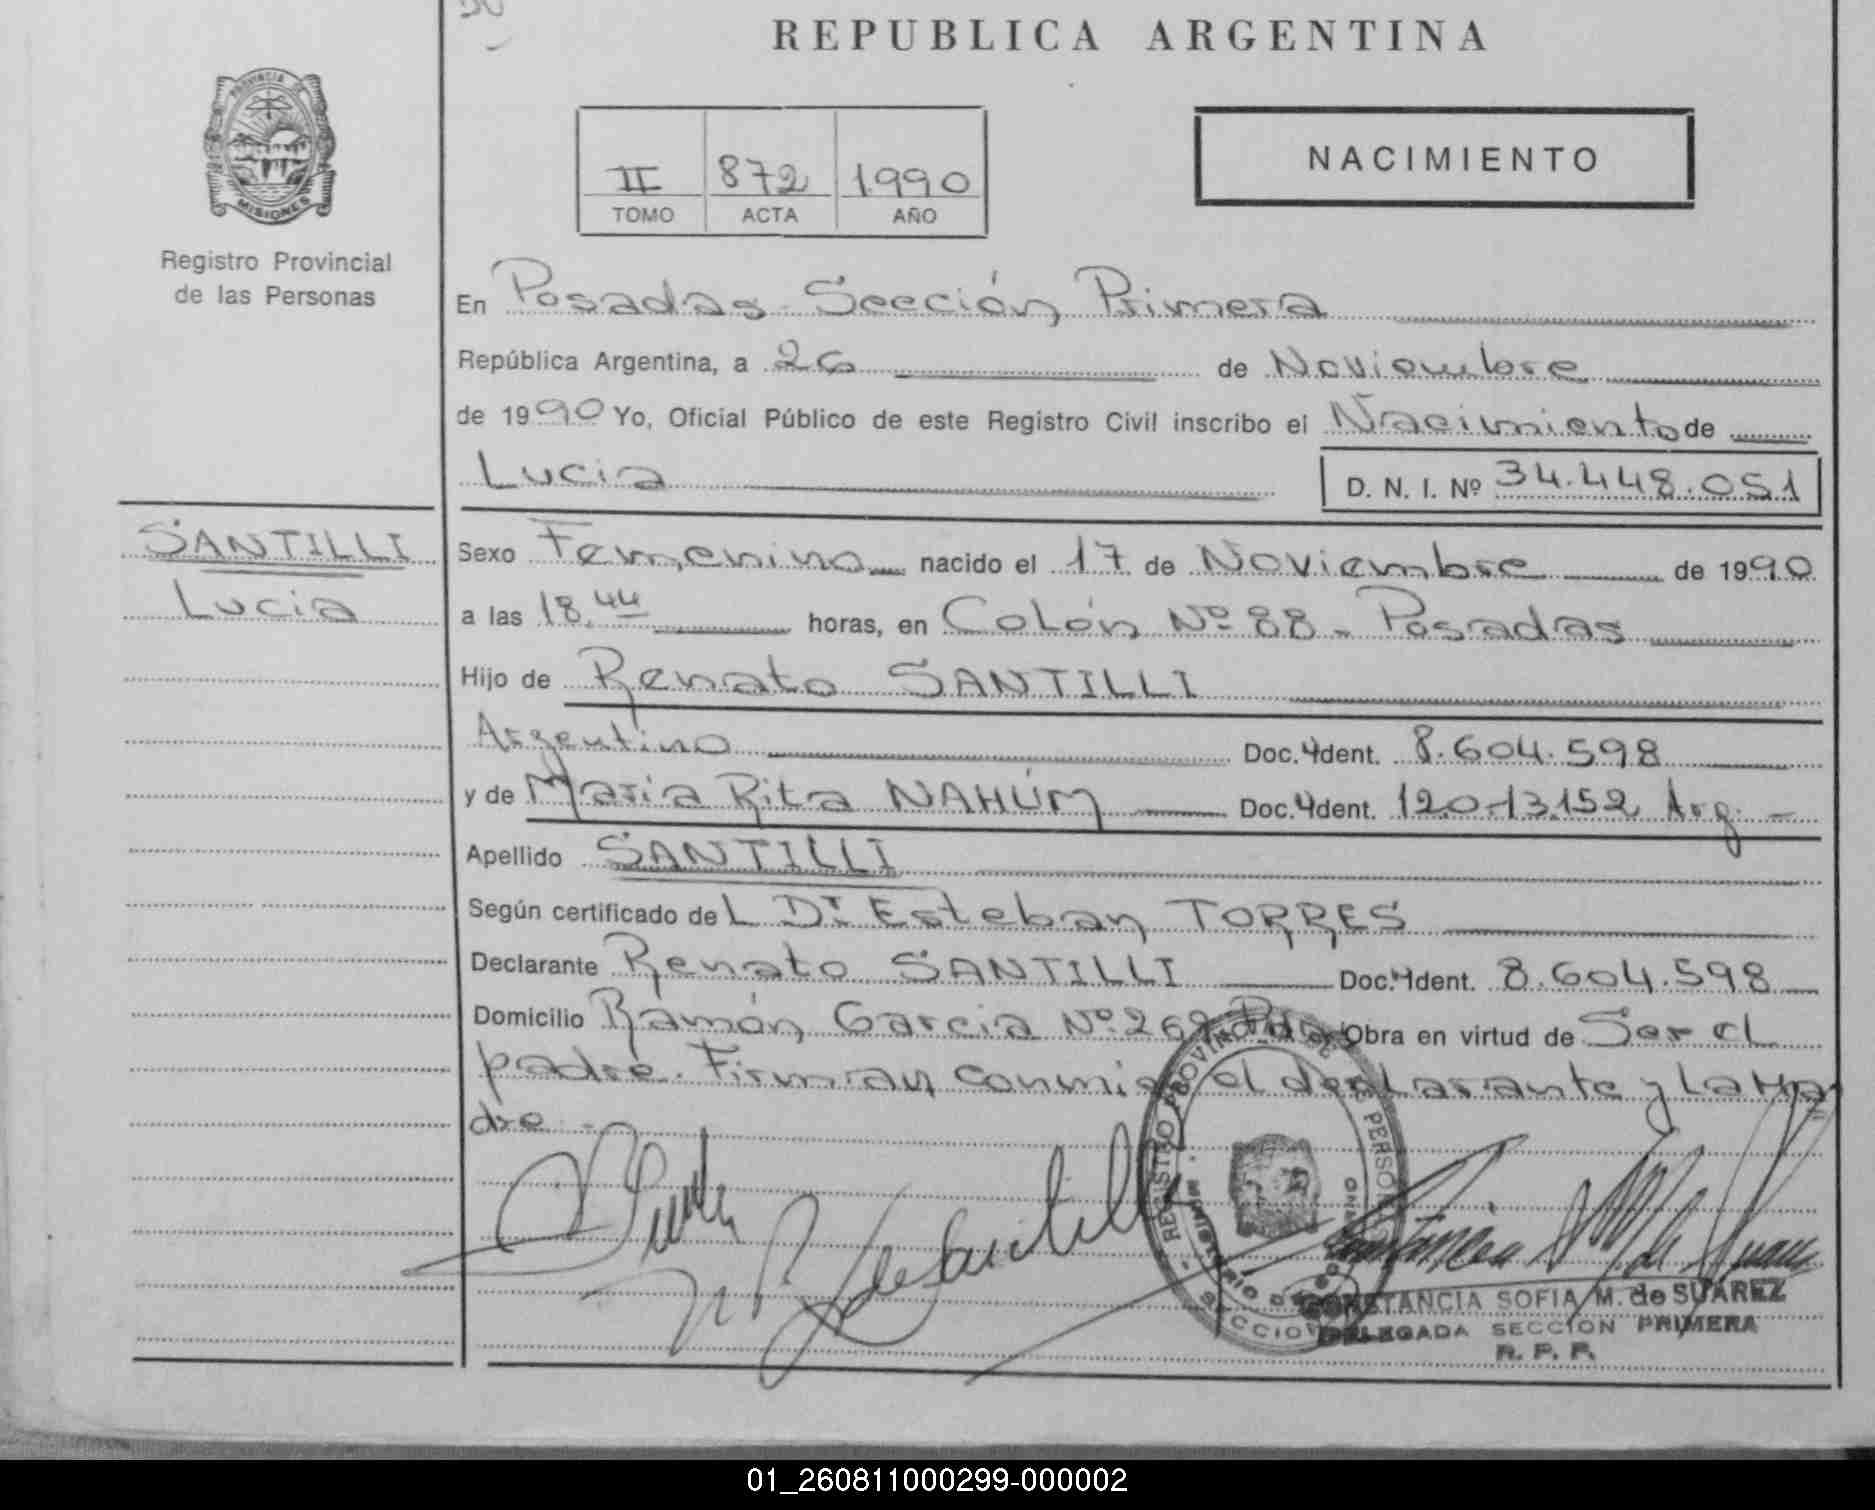 REPUBLICA ARGENTINA
PROVINCIA DE
MISIONES
Registro Provincial
de las Personas
II 872 1990
TOMO ACTA AÑO
NACIMIENTO
En Posadas - Sección Primera
República Argentina, a 26 de Noviembre
de 1990 Yo, Oficial Público de este Registro Civil inscribo el Nacimiento de
Lucia D. N. I. Nº 34.448.051
SANTILLI
Lucia
Sexo Femenino nacido el 17 de Noviembre de 1990
a las 18.44 horas, en Colón Nº 88 - Posadas
Hijo de Renato SANTILLI
Argentino Doc. Ident. 8.604.598
y de María Rita NAHÚM Doc. Ident. 12.013.152 Arg. -
Apellido SANTILLI
Según certificado del Dr Esteban TORRES
Declarante Renato SANTILLI Doc. Ident. 8.604.598
Domicilio Ramón Garcia Nº Obra en virtud de Ser el
padre. Firman conmigo el declarante y la Ma
dre -
CONSTANCIA SOFIA M. de SUAREZ
DELEGADA SECCION PRIMERA
R. P. P.
01_260811000299-000002